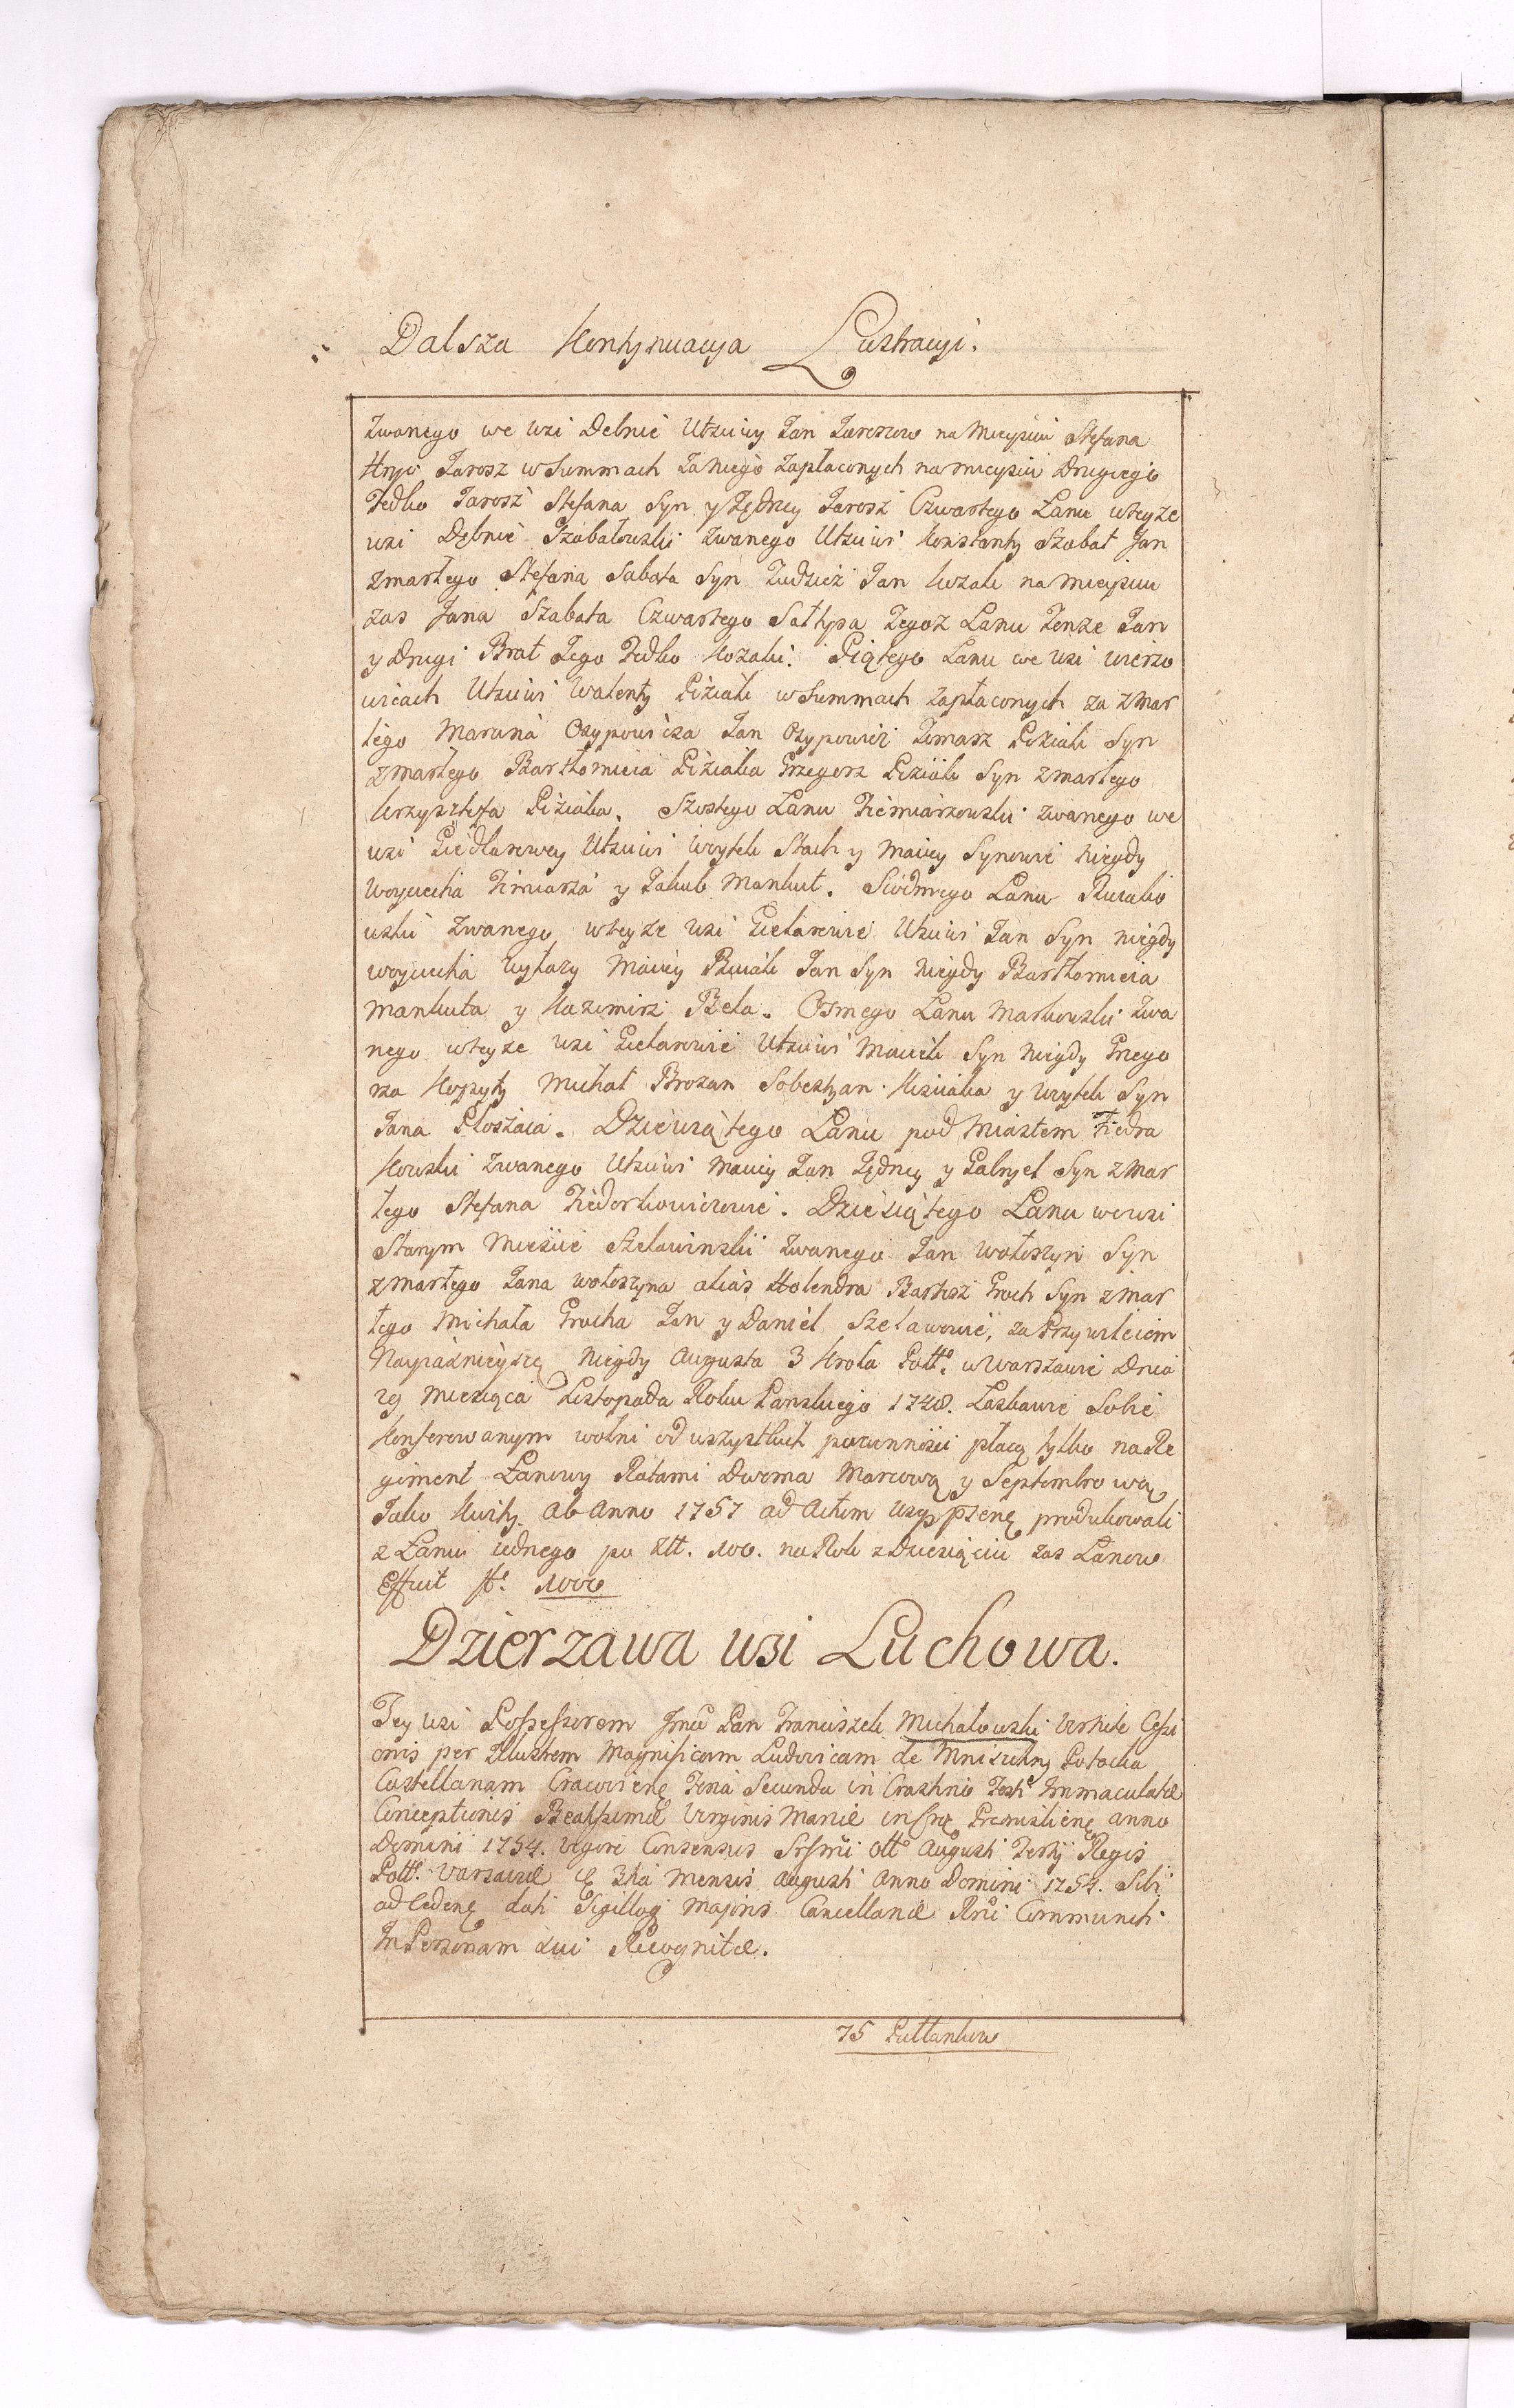 Dalsza Kontynuacya Lustracyi.
Zwanego we wsi Debnie Utciwy Jan Jaroszow na Mieyscu Stefana
Hryc Jarosz w Summach Zaniego Zapłaconych na mieyscu Drugiego
Fedko Jarosz Stefana Syn y Jędrzy Jarosz Czwartego Łanu wteyze
wsi Dębnie Szabatowski Zwanego Utciwi Konstanty Szabat Jan
Zmarłego Stefana Sabata Syn Tudziez Jan Kozak na mieyscu
zas Jana Szabata Czwartego Sathpa Tegoz Łanu Tenze Jan
y Drugi Brat Jego Fedko Kozaki. Piątego Łanu we wsi Wierzo
wicach Utciwi Walenty w Summach zapłaconych za zmar
łego Marcina Osypowicza Jan Osypowicz Tomasz Syn
zmarłego Bartłomieia Grzegorz Syn zmarłego
Krzysztofa Szostego Łanu Zwanego we
wsi Giedlarowey Utciwi Woytek Stach y Maciey Synowie niegdy
Woyciecha y Jakub Mankut. Siodmego Łanu
Zwanego wteyze wsi Utciwi Jan Syn niegdy
Woyciecha Maciey Jan Syn niegdy Bartłomieia
Mankuta y Kazimirz Bela. Osmego Łanu Markowski Zwa
nego wteyze wsi Utciwi Maciek Syn niegdy Grzego
rza Kopyty Michał Brozan Sobestyan y Woytek Syn
Jana Dziewiątego Łanu pod Miastem Fiedra
kowski Zwanego Utciwi Maciey Jan Jędrzy y Gabryel Syn zmar
łego Stefana Fiedorkowiczowie. Dziesiątego Łanu we wsi
Starym Miescie Szelawinskii Zwanego Jan Wołoszyn Syn
zmarłego Jana Wołoszyna alias Holendra Bartosz Groch Syn zmar
łego Michała Grocha Jan y Daniel Szelawowie, za Przywileiem
Nayiasnieyszę niegdy Augusta 3 Krola Poll: w Warszawie Dnia
29 Miesiąca Listopada Roku Panskiego 1748. Łaskawie Sobie
Konferowanym wolni od wszystkich powinnosci płacą tylko na Re
giment Łanowy Ratami Dwoma Marcową y Septembrową
Jako Kwity Ab Anno 1757 ad Actum produkowali
z Łanu iednego po Złł. 100. na Rok z Dziesiąciu zas Łanow
Effuit fl: 1000
Dzierzawa wsi Luchowa.
Tey wsi Possessorem Jmć Pan Franciszek Michałowski Virtute Cessi
onis per Illustrem Magnificam Ludovicam de Mniszchy Potocka
Castellanam Cracovienę Feria Secunda in Crastino Festi Immaculatæ
Conceptionis Beatissimæ Virginis Mariæ in Premislienę Anno
Domini 1754. Vigore Consensus Augusti Tertij Regis
Poll: Varsaviæ 3tia Mensis Augusti Anno Domini 1754. Sibi
ad Cedenę dati Sigilloq Majoris Cancellariæ Communiti
In Personam Sui Recognitæ.
75 Pułtankow